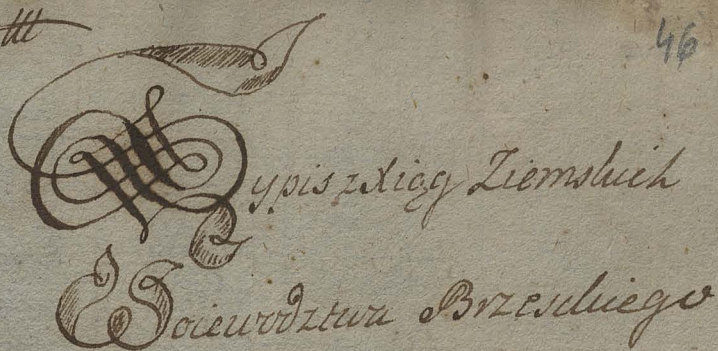 46
Wypis z Xiąg Ziemskich
Woiewodztwa Brzeskiego